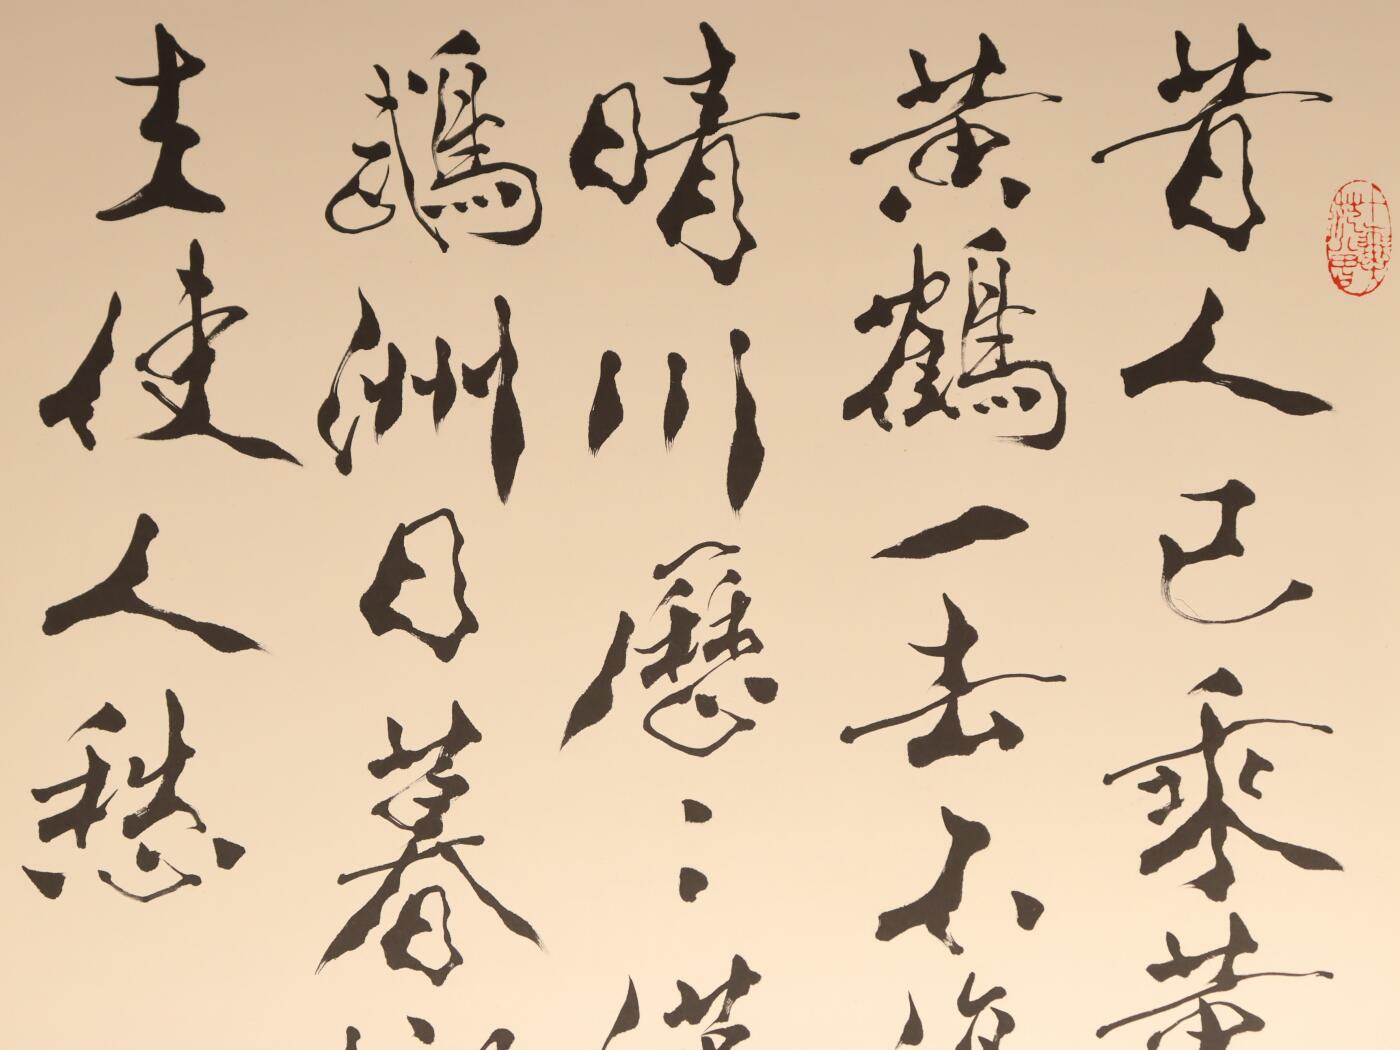 昔人已乘黄
黄鶴一去不復
晴川歷〻漢
鵡洲日暮
上使人愁